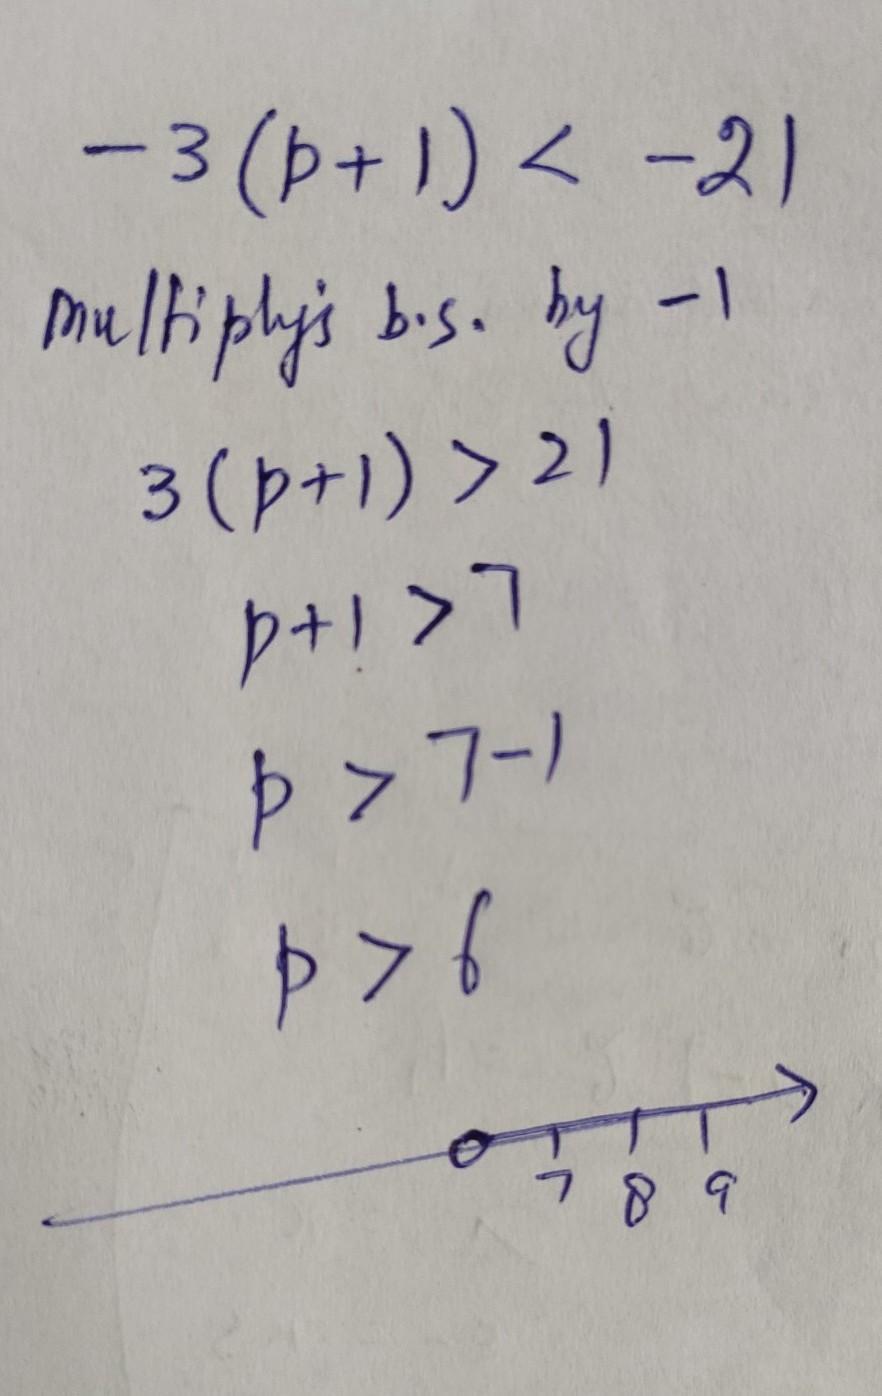 -3(p+1) < -21
Multiplying b.s. by -1
3(p+1) > 21
p+1 > 7
p > 7-1
p > 6
7 8 9